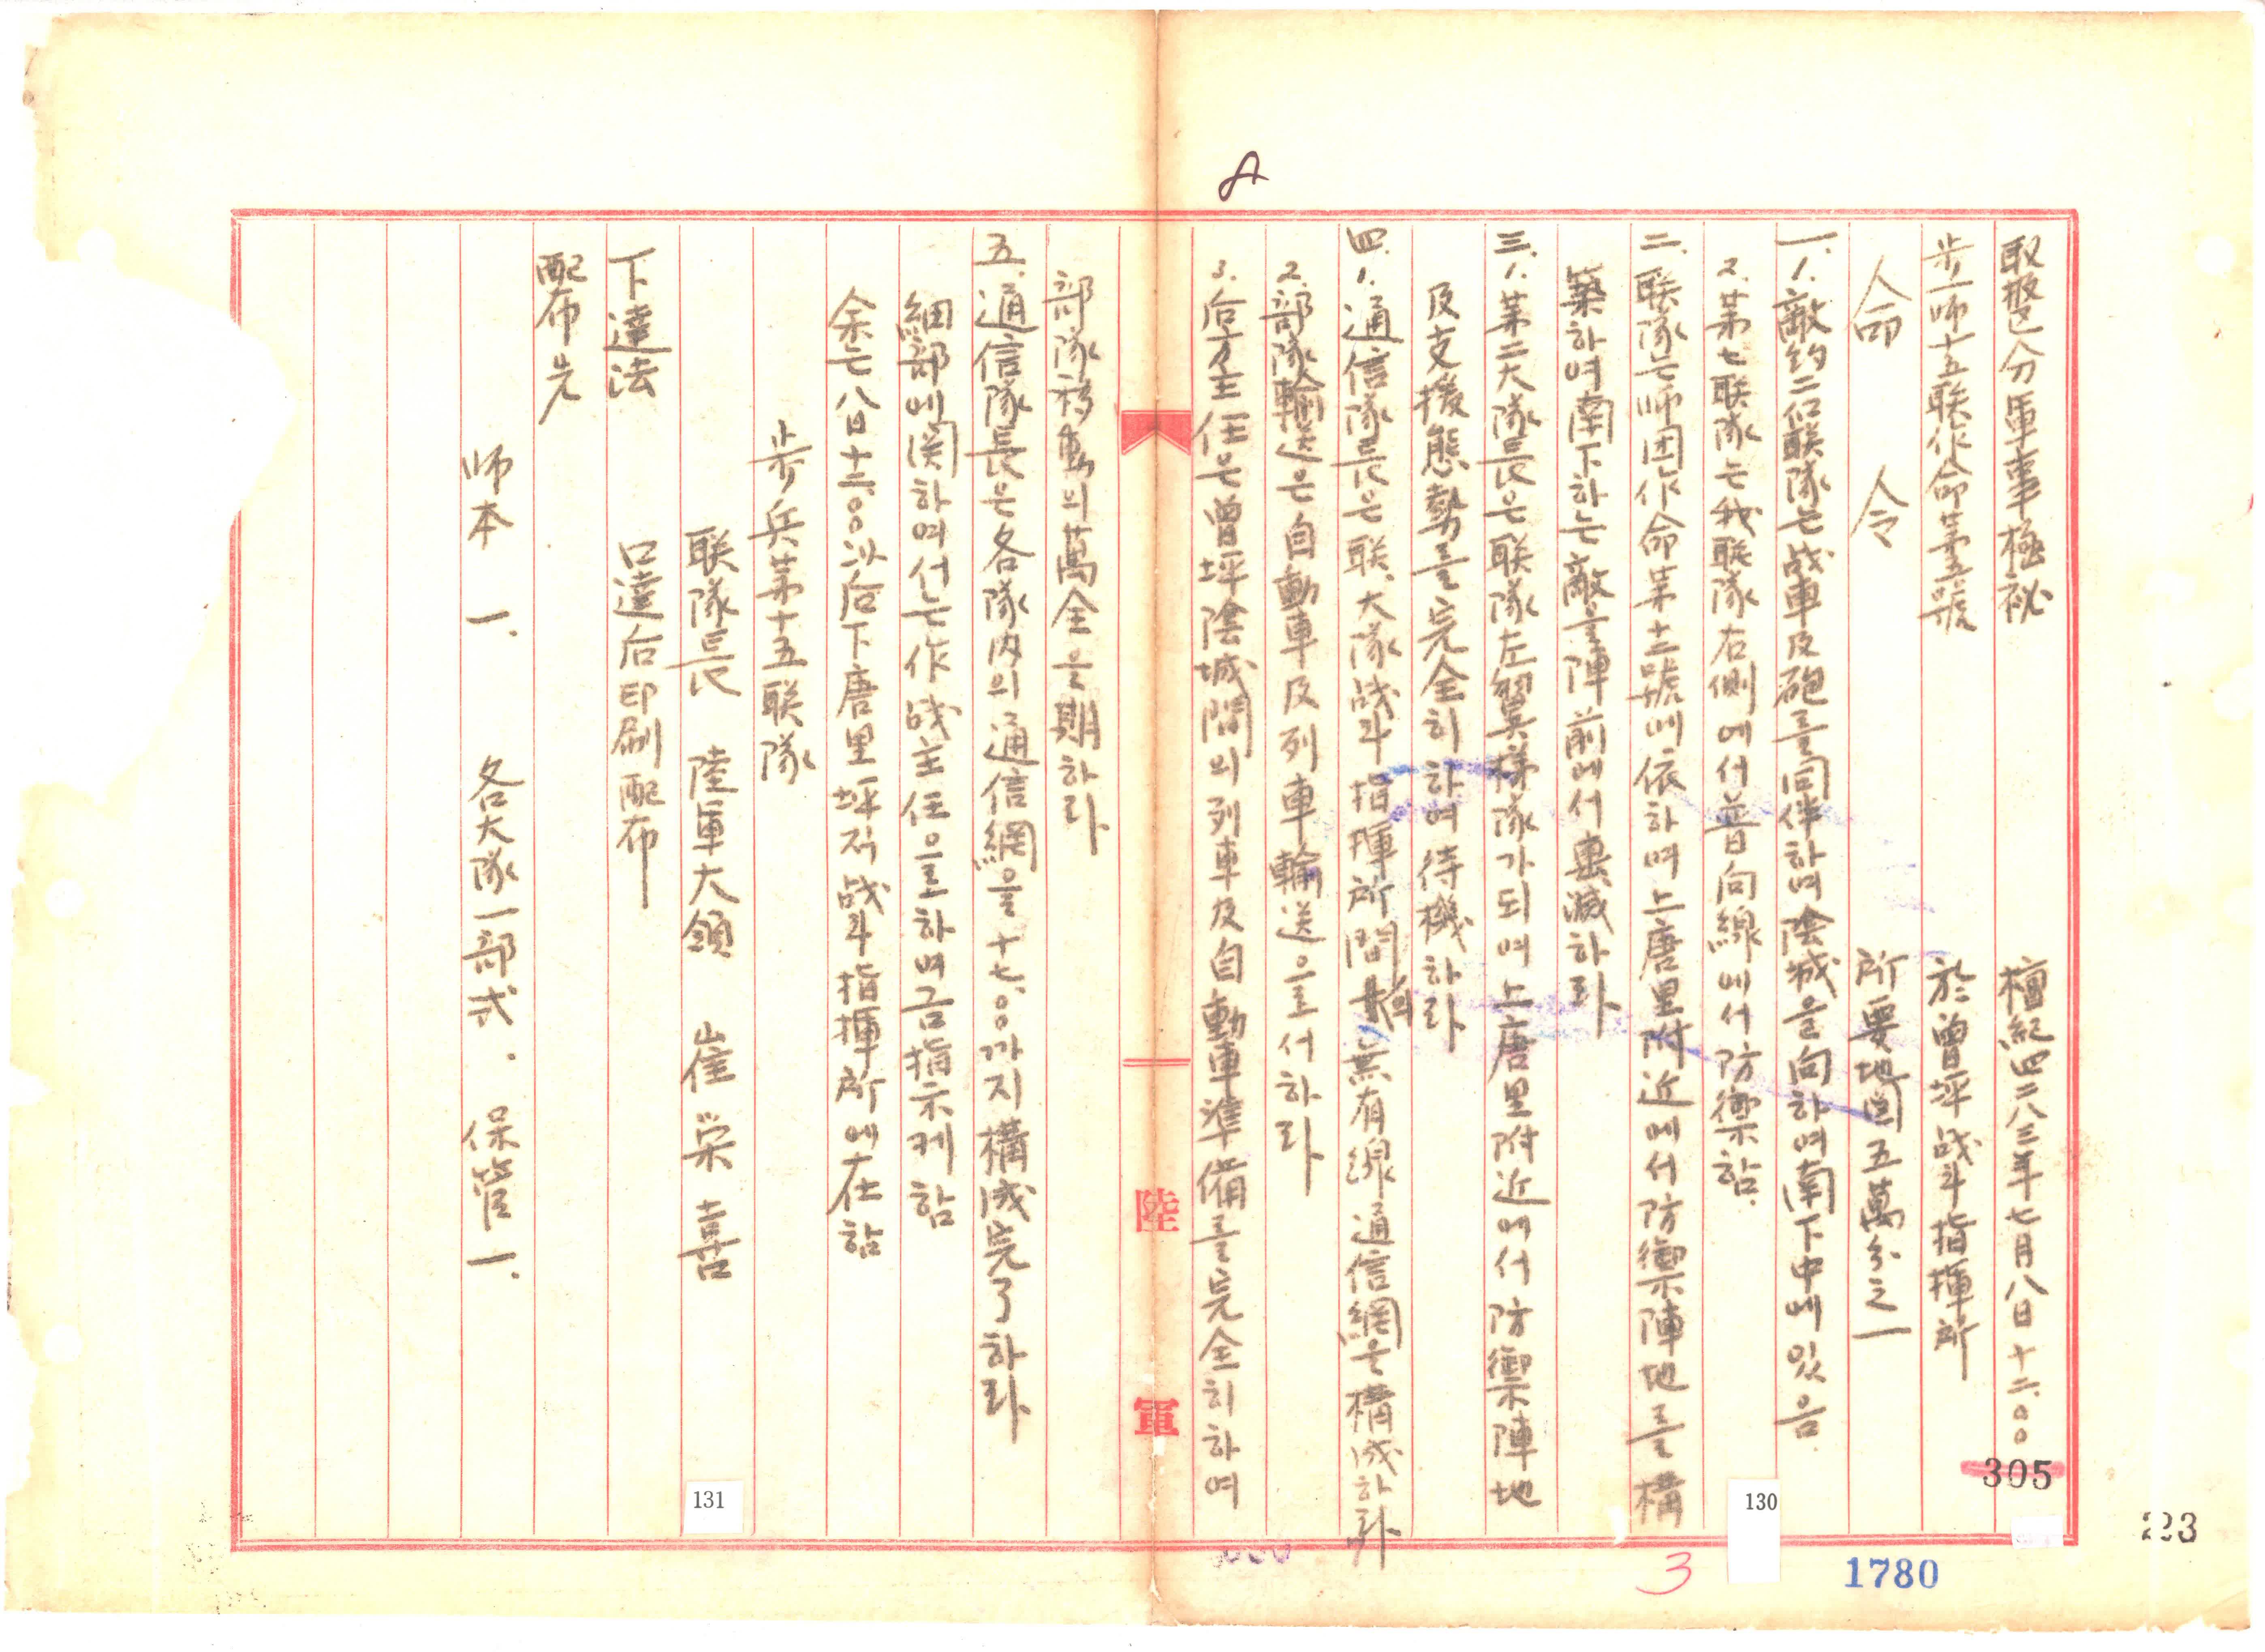 取扱区分軍事極祕
檀紀四二八三年七月八日十二.００
步一師十五联作命第五號
於曾坪战斗指揮所
命 令
所要地図五萬分之一
一.1.敵約二個联隊은战車及砲를同伴하여陰城을向하여南下中에있음.
2.第七联隊는我联隊右側에서普向線에서防禦함.
二.联隊는师团作命第十三號에依하여上唐里附近에서防禦陣地를構
築하여南下하는敵을陣前에서裏滅하라
三.1.第二大隊長은联隊左翼様隊가되여上唐里附近에서防禦陣地
及支援態勢를完全히하여待機하라
四.1.通信隊長은联.大隊战斗指揮所間의無有線通信網을構成하라
2.部隊輸送은自動車及列車輸送으로서하라
3.后方主任은曾坪陰城間의列車及自動車準備를完全히하여
部隊移動의萬全을期하라
五.通信隊長은各隊內의通信網을十七.０까지構成完了하라
細部에関하여서는作战主任으로하여금指示케함
余는八日十三.００以后下唐里坪직战斗指揮所에在함
步兵第十五联隊
联隊長 陸軍大領 崔栄喜
下達法
口達后印刷配布
配布先
师本 一. 各大隊一部式. 保管一.
陸軍
A
131
130
305
223
1780
3